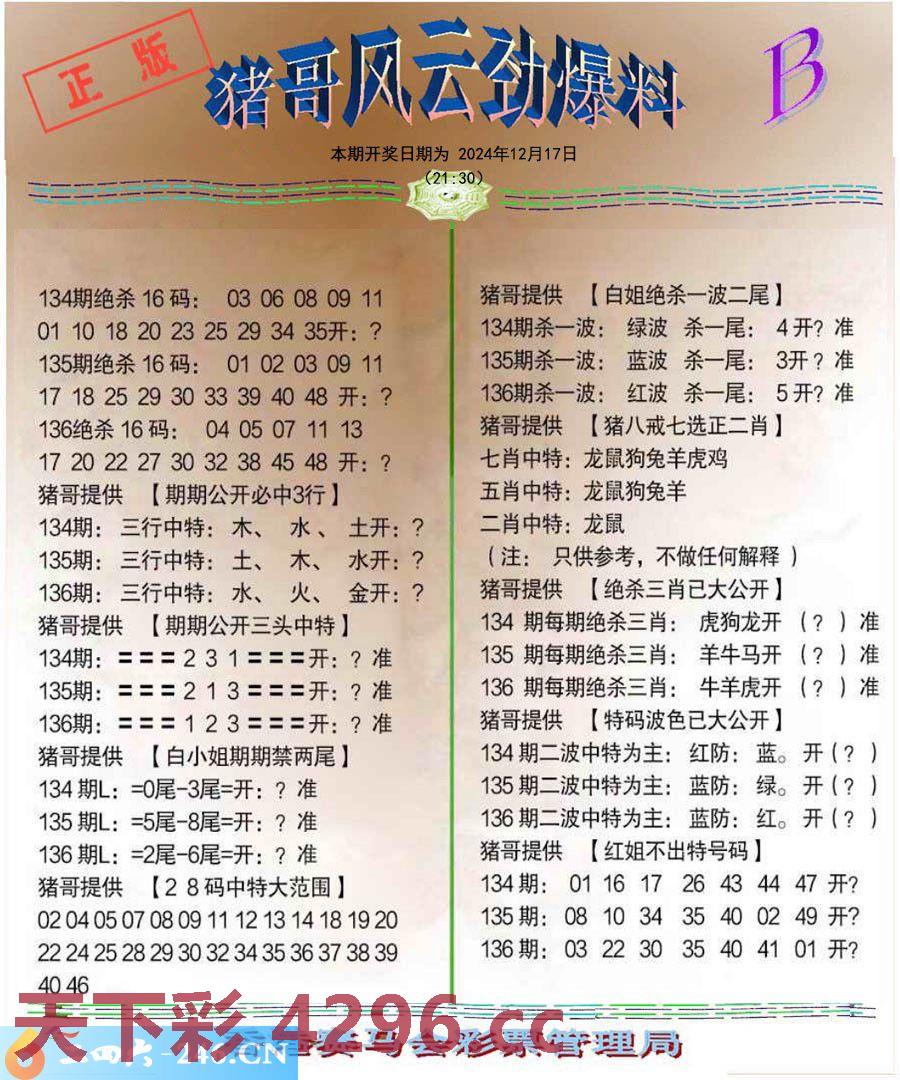 正版
猪哥风云劲爆料
B
本期开奖日期为 2024年12月17日
(21:30)
134期绝杀16码： 03 06 08 09 11
01 10 18 20 23 25 29 34 35开：？
135期绝杀16码： 01 02 03 09 11
17 18 25 29 30 33 39 40 48 开：？
136绝杀16码： 04 05 07 11 13
17 20 22 27 30 32 38 45 48 开：？
猪哥提供 【期期公开必中3行】
134期： 三行中特： 木、 水、 土开：？
135期： 三行中特： 土、 木、 水开：？
136期： 三行中特： 水、 火、 金开：？
猪哥提供 【期期公开三头中特】
134期：===2 3 1===开：？准
135期：===2 1 3===开：？准
136期：===1 2 3===开：？准
猪哥提供 【白小姐期期禁两尾】
134期L：=0尾-3尾=开：？准
135期L：=5尾-8尾=开：？准
136期L：=2尾-6尾=开：？准
猪哥提供 【２８码中特大范围】
02 04 05 07 08 09 11 12 13 14 18 19 20
22 24 25 28 29 30 32 34 35 36 37 38 39
40 46
猪哥提供 【白姐绝杀一波二尾】
134期杀一波： 绿波 杀一尾： 4开？准
135期杀一波： 蓝波 杀一尾： 3开？准
136期杀一波： 红波 杀一尾： 5开？准
猪哥提供 【猪八戒七选正二肖】
七肖中特：龙鼠狗兔羊虎鸡
五肖中特：龙鼠狗兔羊
二肖中特：龙鼠
（注： 只供参考，不做任何解释）
猪哥提供 【绝杀三肖已大公开】
134 期每期绝杀三肖： 虎狗龙开 （？）准
135 期每期绝杀三肖： 羊牛马开 （？）准
136 期每期绝杀三肖： 牛羊虎开 （？）准
猪哥提供 【特码波色已大公开】
134期二波中特为主：红防：蓝。开(？)
135期二波中特为主：蓝防：绿。开(？)
136期二波中特为主：蓝防：红。开(？)
猪哥提供 【红姐不出特号码】
134期： 01 16 17 26 43 44 47 开?
135期： 08 10 34 35 40 02 49 开?
136期： 03 22 30 35 40 41 01 开?
天下彩 4296.cc
二四六-246.CN
马会彩票管理局